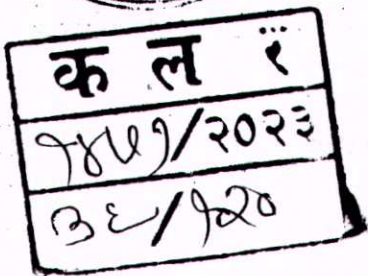 क ल १
१४५१/२०२३
३६/१२०